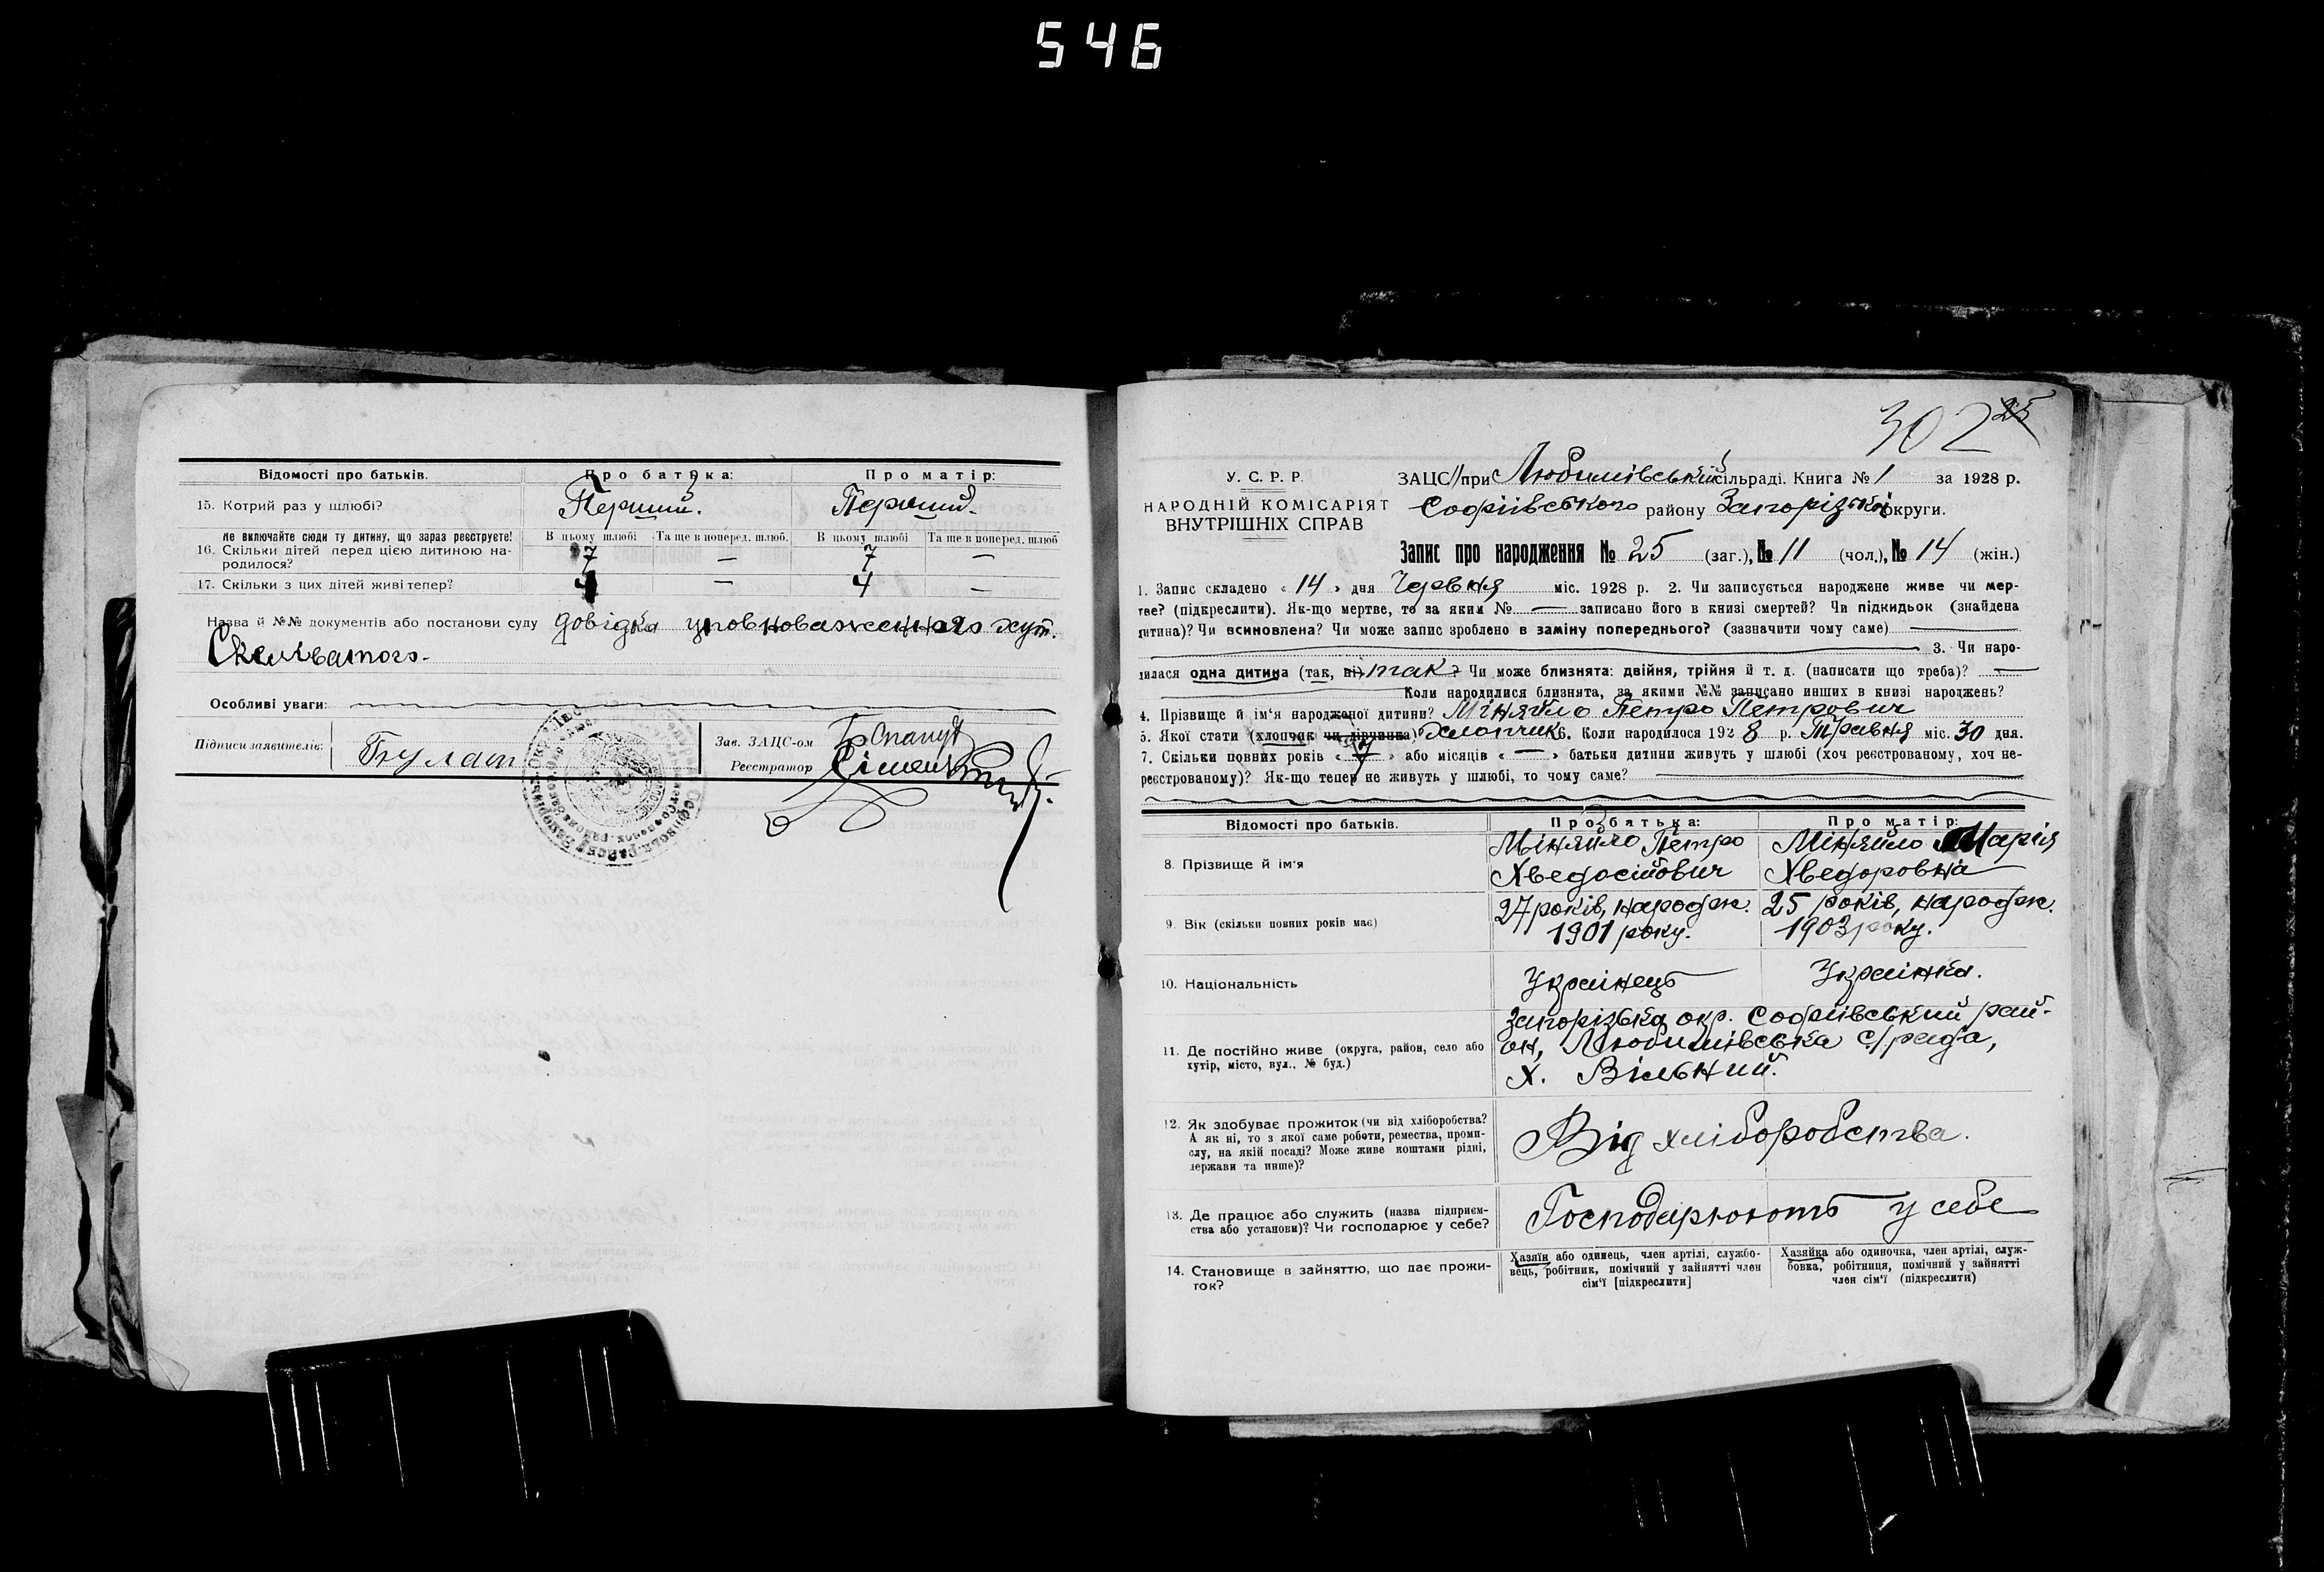 546
Відомості про батьків. Про батька: Про матір:
15. Котрий раз у шлюбі? Перший. Перший.
не включайте сюди ту дитину, що зараз реєструєте! В цьому шлюбі Та ще в поперед. шлюб. В цьому шлюбі Та ще в поперед. шлюб
16. Скільки дітей перед цією дитиною на- 7 — 7 —
родилося?
17. Скільки з цих дітей живі тепер? 4 — 4 —
Назва й №№ документів або постанови суду довідка уповноваженного хут.
Скелеватого.
Особливі уваги:
Підписи заявителів: Булат Зав. ЗАЦС-ом
Реєстратор
302 25
У. С. Р. Р.
НАРОДНІЙ КОМІСАРІЯТ
ВНУТРІШНІХ СПРАВ
ЗАЦС при Любимівській сільраді. Книга № 1 за 1928 р.
Софіївського району Запорізької округи.
Запис про народження № 25 (заг.), № 11 (чол.), № 14 (жін.)
1. Запис складено « 14 » дня Червня міс. 1928 р. 2. Чи записується народжене живе чи мер-
тве? (підкреслити). Як-що мертве, то за яким № — записано його в книзі смертей? Чи підкидьок (знайдена
дитина)? Чи всиновлена? Чи може запис зроблено в заміну попереднього? (зазначити чому саме) —
3. Чи наро-
дилася одна дитина (так, ні) так? Чи може близнята: двійня, трійня й т. д. (написати що треба)? —
Коли народилися близнята, за якими №№ записано инших в книзі народжень?
4. Прізвище й ім'я народженої дитини? Міняйло Петро Петрович
5. Якої стати (хлопчак чи дівчинка)? Хлопчик 6. Коли народилося 1928 р. Травня міс. 30 дня.
7. Скільки повних років « 7 » або місяців « — » батьки дитини живуть у шлюбі (хоч реєстрованому, хоч не-
реєстрованому)? Як-що тепер не живуть у шлюбі, то чому саме?
Відомості про батьків. Про батька: Про матір:
8. Прізвище й ім'я Міняйло Петро Міняйло Марія
Хведосійович Хведоровна
9. Вік (скільки повних років має) 27 років, народж. 25 років, народж.
1901 року. 1903 року.
10. Національність Українець Українка.
Запорізька окр. Софіївський рай-
11. Де постійно живе (округа, район, село або он, Любимівська с/рада,
хутір, місто, вул., № буд.) х. Вільний.
12. Як здобуває прожиток (чи від хліборобства?
А як ні, то з якої саме роботи, ремества, проми-
слу, на якій посаді? Може живе коштами рідні,
держави та инше)?
Від хліборобства.
13. Де працює або служить (назва підприєм-
ства або установи)? Чи господарює у себе?
Господарюють у себе
14. Становище в зайняттю, що дає прожи-
ток?
Хазяїн або одинець, член артілі, службо-
вець, робітник, помічний у зайнятті член
сім'ї [підкреслити]
Хазяйка або одиночка, член артілі, служ-
бовка, робітниця, помічний у зайнятті
член сім'ї (підкреслити)